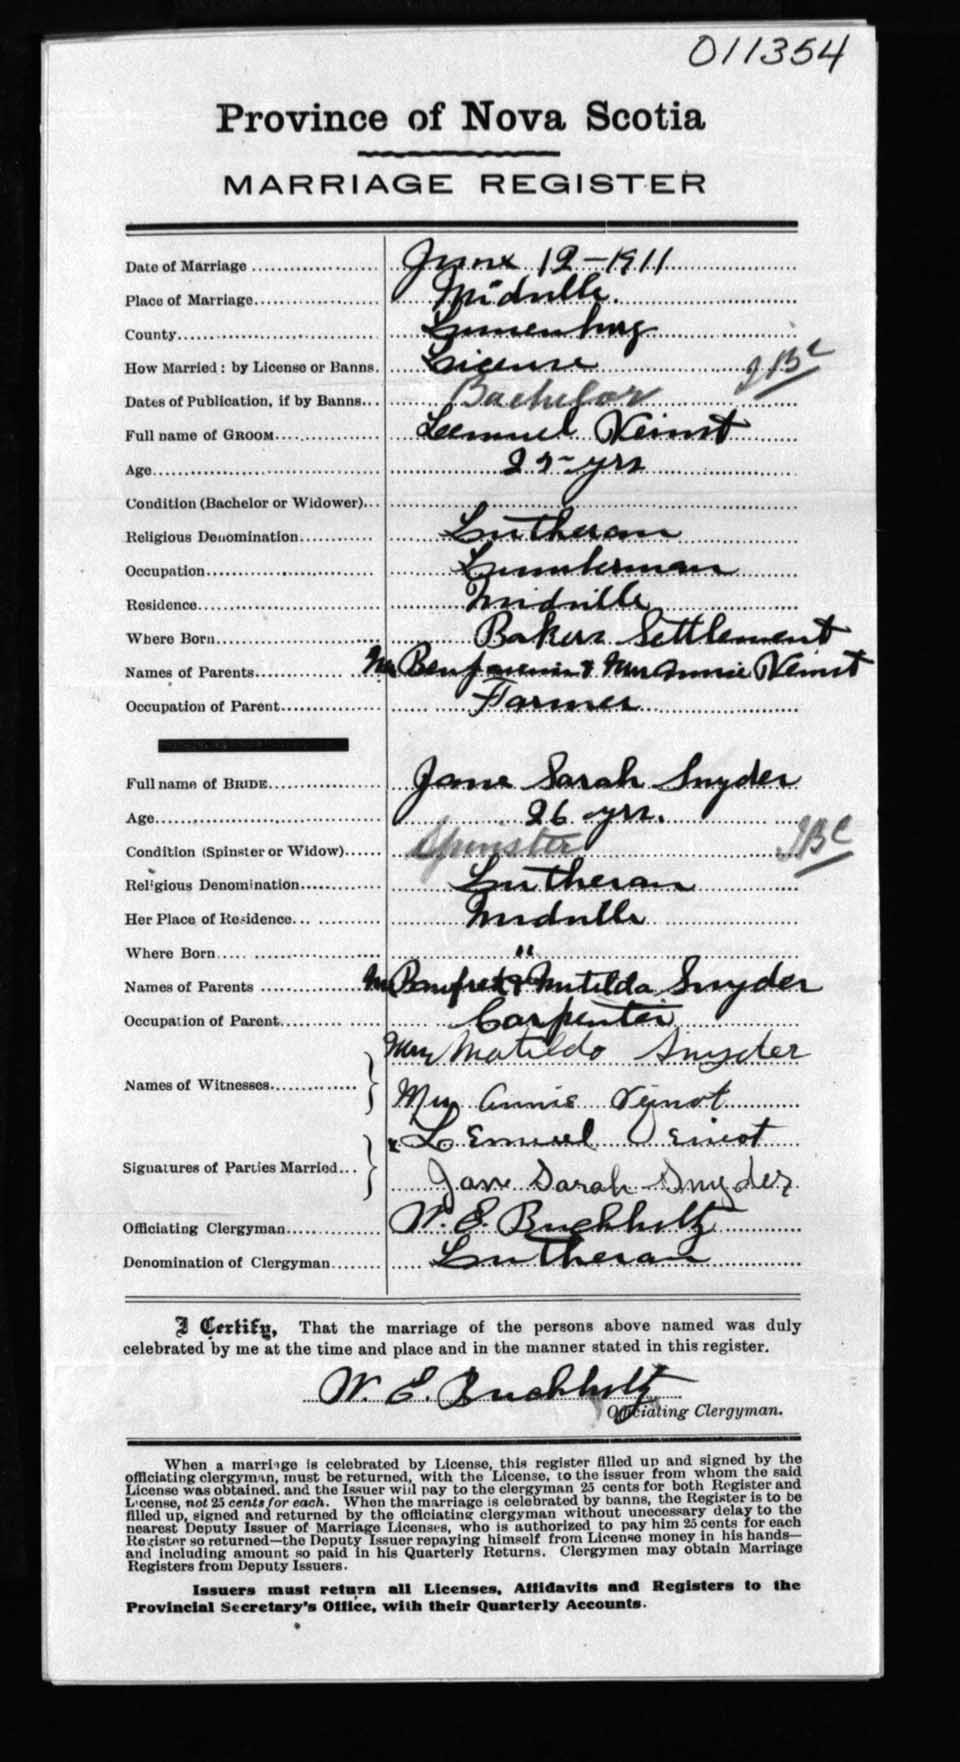 011354
Province of Nova Scotia
MARRIAGE REGISTER
Date of Marriage June 12-1911
Place of Marriage Midville.
County Lunenburg
How Married: by License or Banns. License JBC
Dates of Publication, if by Banns Bachelor
Full name of GROOM Lemuel Veinot
Age yrs
Condition (Bachelor or Widower)
Religious Denomination Lutheran
Occupation Lumberman
Residence Midville
Where Born Bakers Settlement
Names of Parents Mr Benjamin & Mrs Annie Veinot
Occupation of Parent Farmer
Full name of BRIDE Jane Sarah Snyder
Age 26 yrs.
Condition (Spinster or Widow) Spinster JBC
Religious Denomination Lutheran
Her Place of Residence Midville
Where Born "
Names of Parents Mr & Matilda Snyder
Occupation of Parent Carpenter
Names of Witnesses Mrs Matilda Snyder
Mrs Annie Veinot
Signatures of Parties Married Lemuel Veinot
Jane Sarah Snyder
Officiating Clergyman W. E. Buchholtz
Denomination of Clergyman Lutheran
I Certify, That the marriage of the persons above named was duly
celebrated by me at the time and place and in the manner stated in this register.
W. E. Buchholtz
Officiating Clergyman.
When a marriage is celebrated by License, this register filled up and signed by the
officiating clergyman, must be returned, with the License, to the issuer from whom the said
License was obtained, and the Issuer will pay to the clergyman 25 cents for both Register and
License, not 25 cents for each. When the marriage is celebrated by banns, the Register is to be
filled up, signed and returned by the officiating clergyman without unecessary delay to the
nearest Deputy Issuer of Marriage Licenses, who is authorized to pay him 25 cents for each
Register so returned—the Deputy Issuer repaying himself from License money in his hands—
and including amount so paid in his Quarterly Returns. Clergymen may obtain Marriage
Registers from Deputy Issuers.
Issuers must return all Licenses, Affidavits and Registers to the
Provincial Secretary's Office, with their Quarterly Accounts.